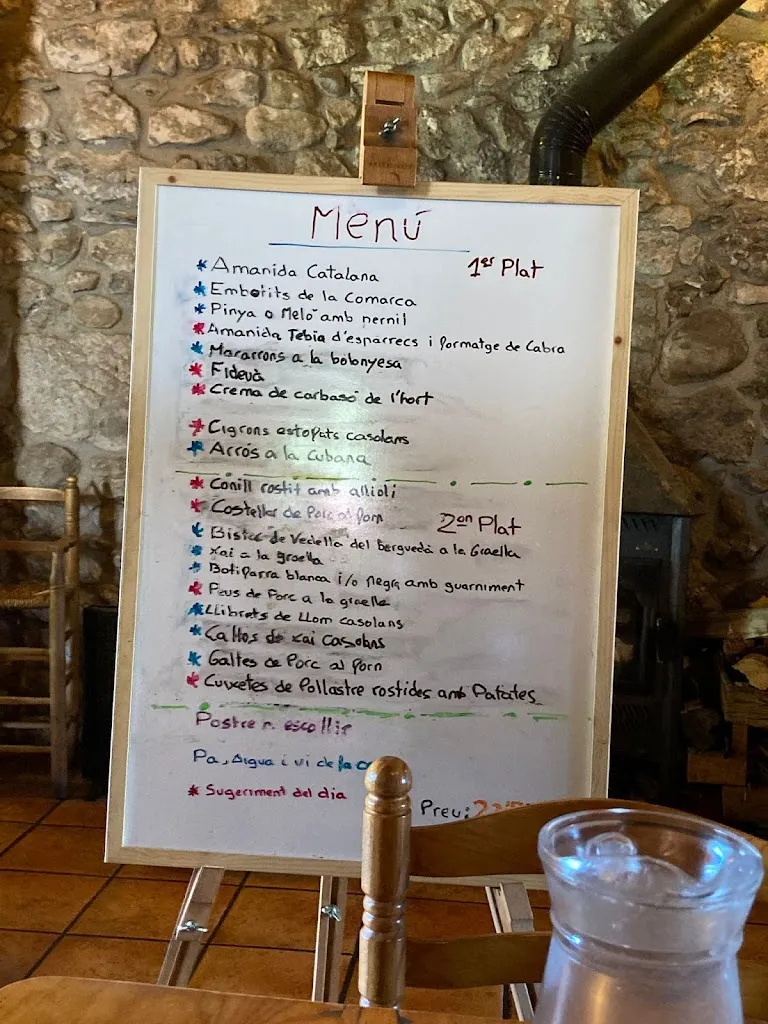 Menú
1er Plat
* Amanida Catalana
* Embotits de la Comarca
* Pinya o Meló amb pernil
* Amanida Tèbia d'esparrecs i formatge de Cabra
* Macarrons a la bolonyesa
* Fideuà
* Crema de carbassó de l'hort
* Cigrons estofats casolans
* Arròs a la Cubana
2on Plat
* Conill rostit amb allioli
* Costella de Porc al forn
* Bistec de Vedella del Berguedà a la Graella
* Xai a la graella
* Botifarra blanca i/o negra amb guarniment
* Peus de Porc a la graella
* Llibrets de Llom casolans
* Callos de xai casolans
* Galtes de Porc al forn
* Cuixetes de Pollastre rostides amb Patates
Postre a escollir
Pa, Aigua i vi de la
* Sugeriment del dia
Preu: